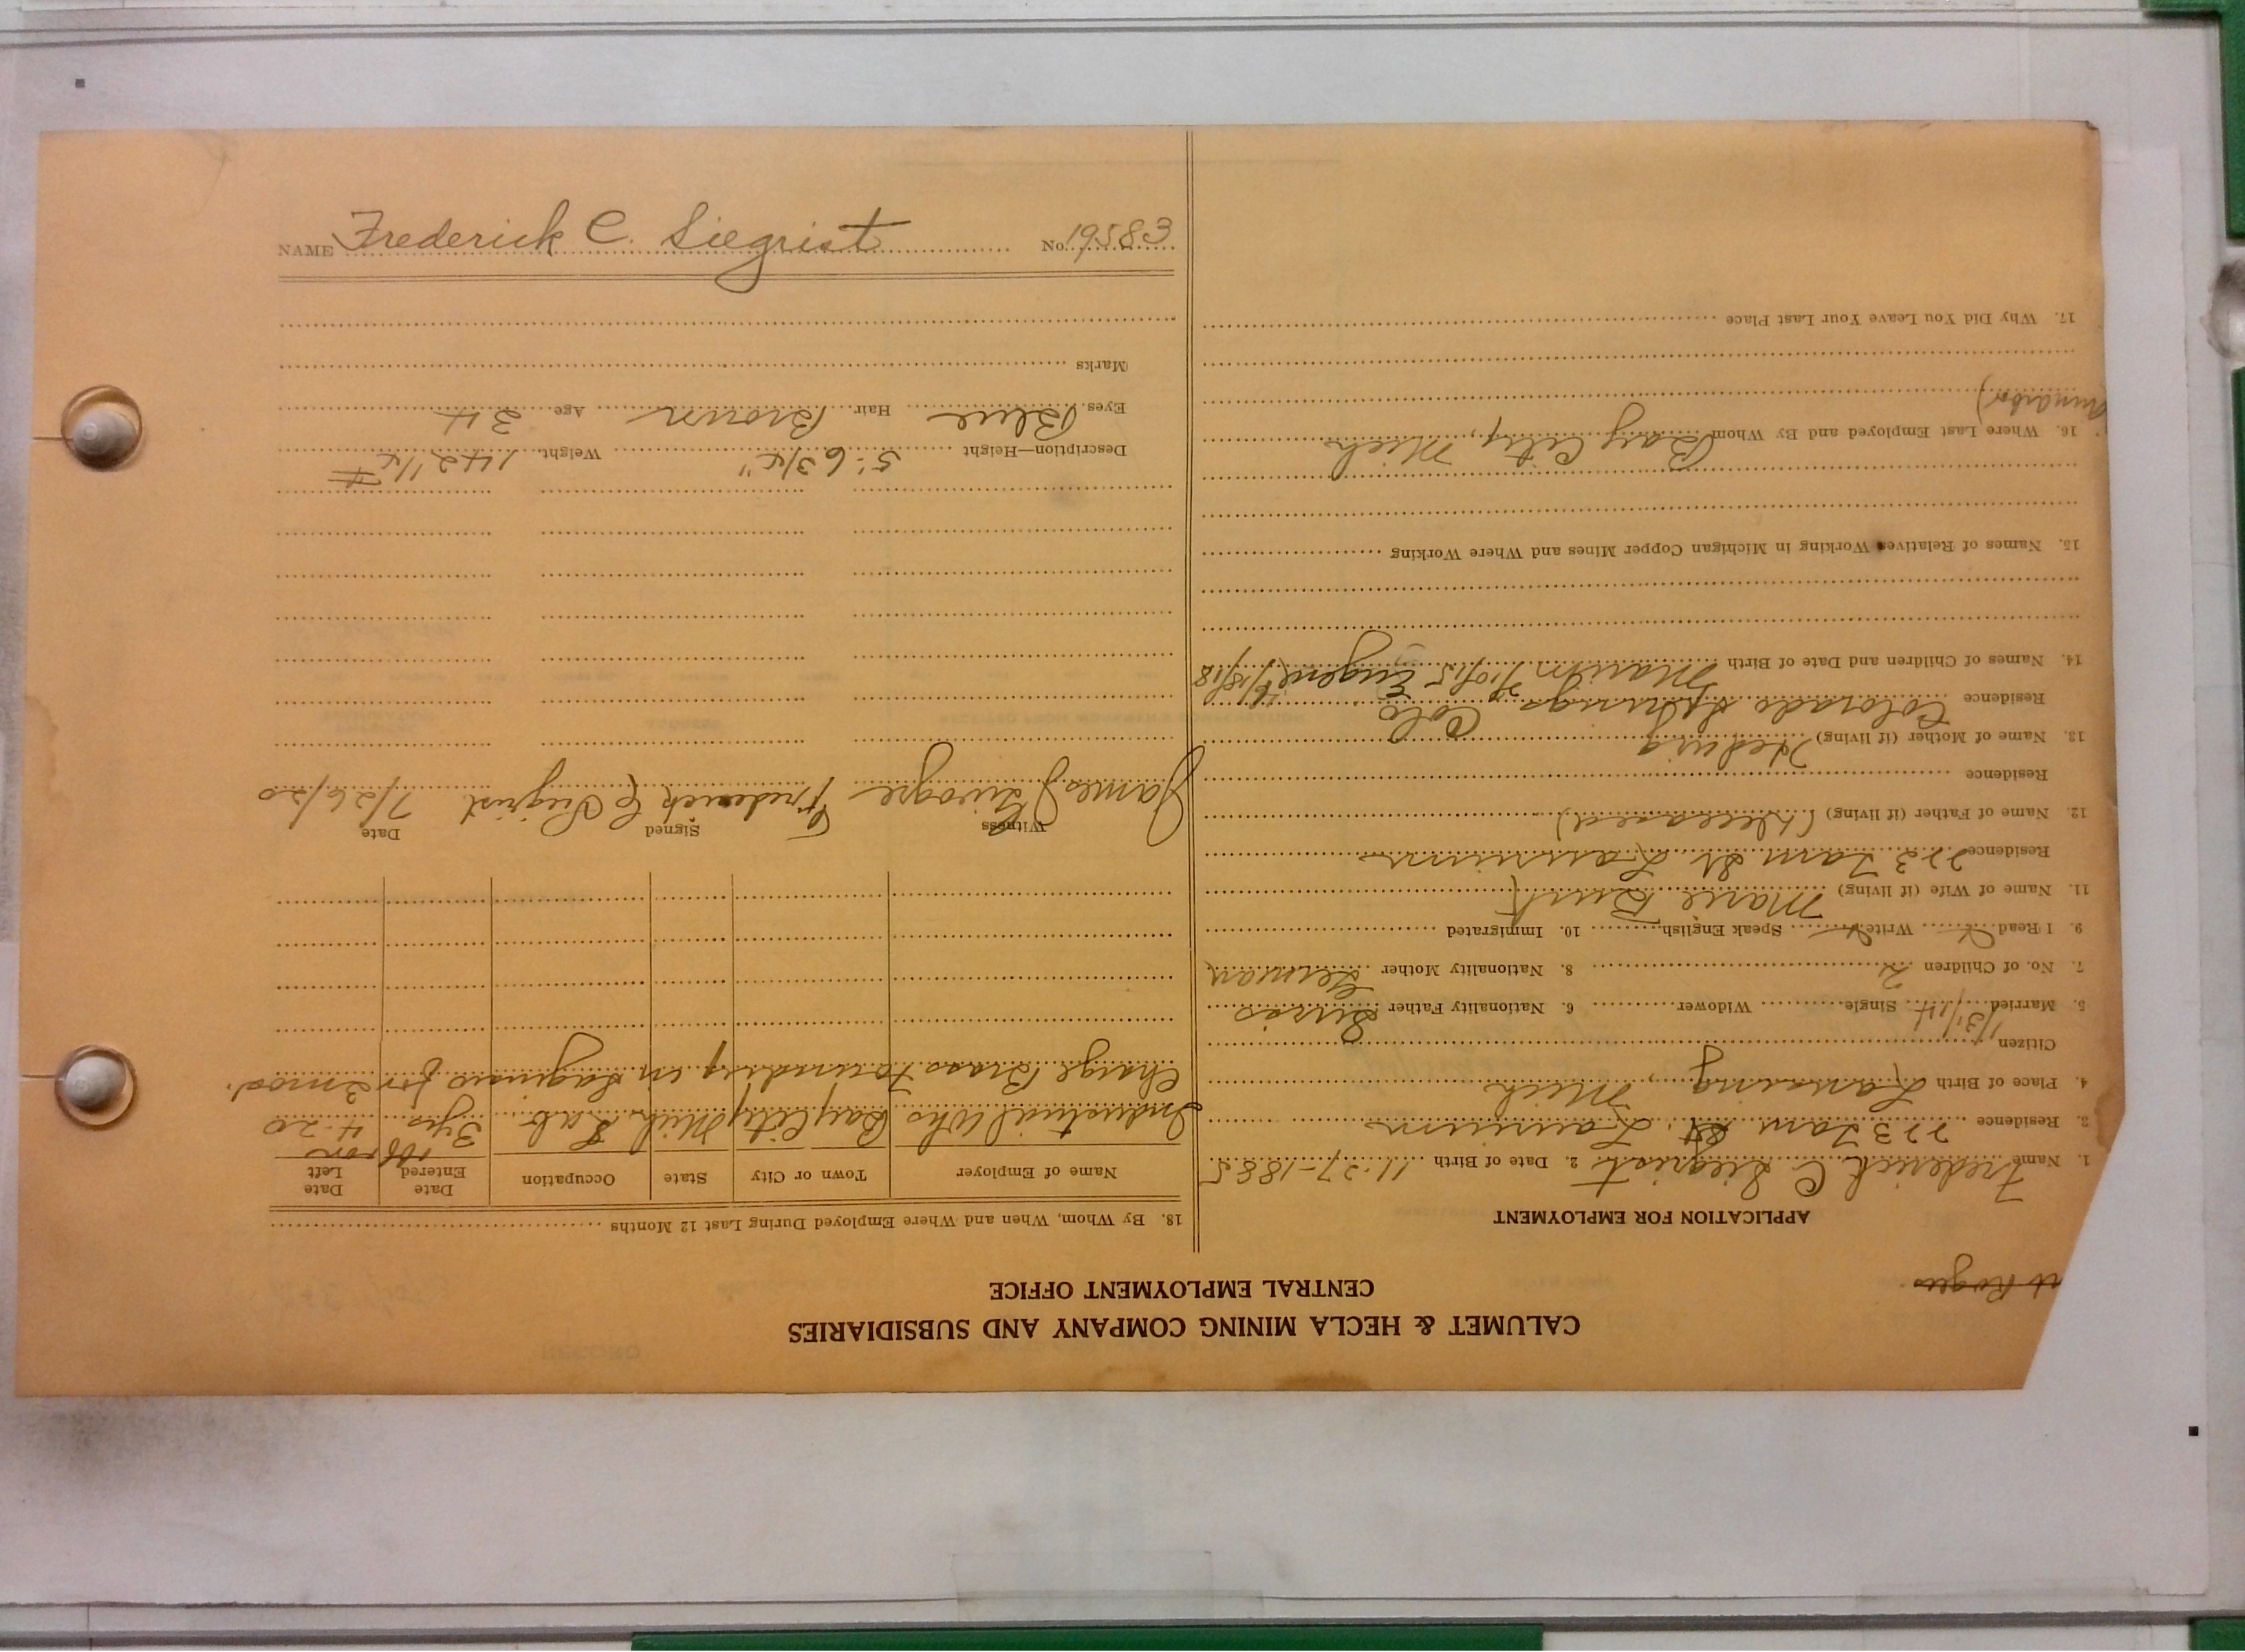 CALUMET & HECLA MINING COMPANY AND SUBSIDIARIES
CENTRAL EMPLOYMENT OFFICE
APPLICATION FOR EMPLOYMENT
1. Name Frederick C. Siegrist 2. Date of Birth 11-27-1885
3. Residence 223 Tam St. Laurium
4. Place of Birth Lansing, Mich
Citizen
5. Married 1/31/14 Single Widower 6. Nationality Father Swiss
7. No. of Children 2 8. Nationality Mother German
9. I Read Write Speak English 10. Immigrated
11. Name of Wife (if living) Marie Burt
Residence 223 Tam St. Laurium
12. Name of Father (if living) (Deceased)
Residence
13. Name of Mother (if living) Hedwig
Residence Colorado Springs Colo
14. Names of Children and Date of Birth Marilyn Eugene
15. Names of Relatives Working in Michigan Copper Mines and Where Working
16. Where Last Employed and By Whom Bay City, Mich
17. Why Did You Leave Your Last Place
18. By Whom, When and Where Employed During Last 12 Months
Name of Employer Town or City State Occupation Date Entered Date Left
Industrial Wks Bay City Mich Lab. 3 yrs. 4-20
Charge Brass Foundry in Saginaw for 3 mos.
Witness Signed Date
James J Frederick C Siegrist 7/26/20
Description—Height 5' 6 3/4" Weight 142 1/4 #
Eyes Blue Hair Brown Age 34
Marks
NAME Frederick C. Siegrist No. 19583